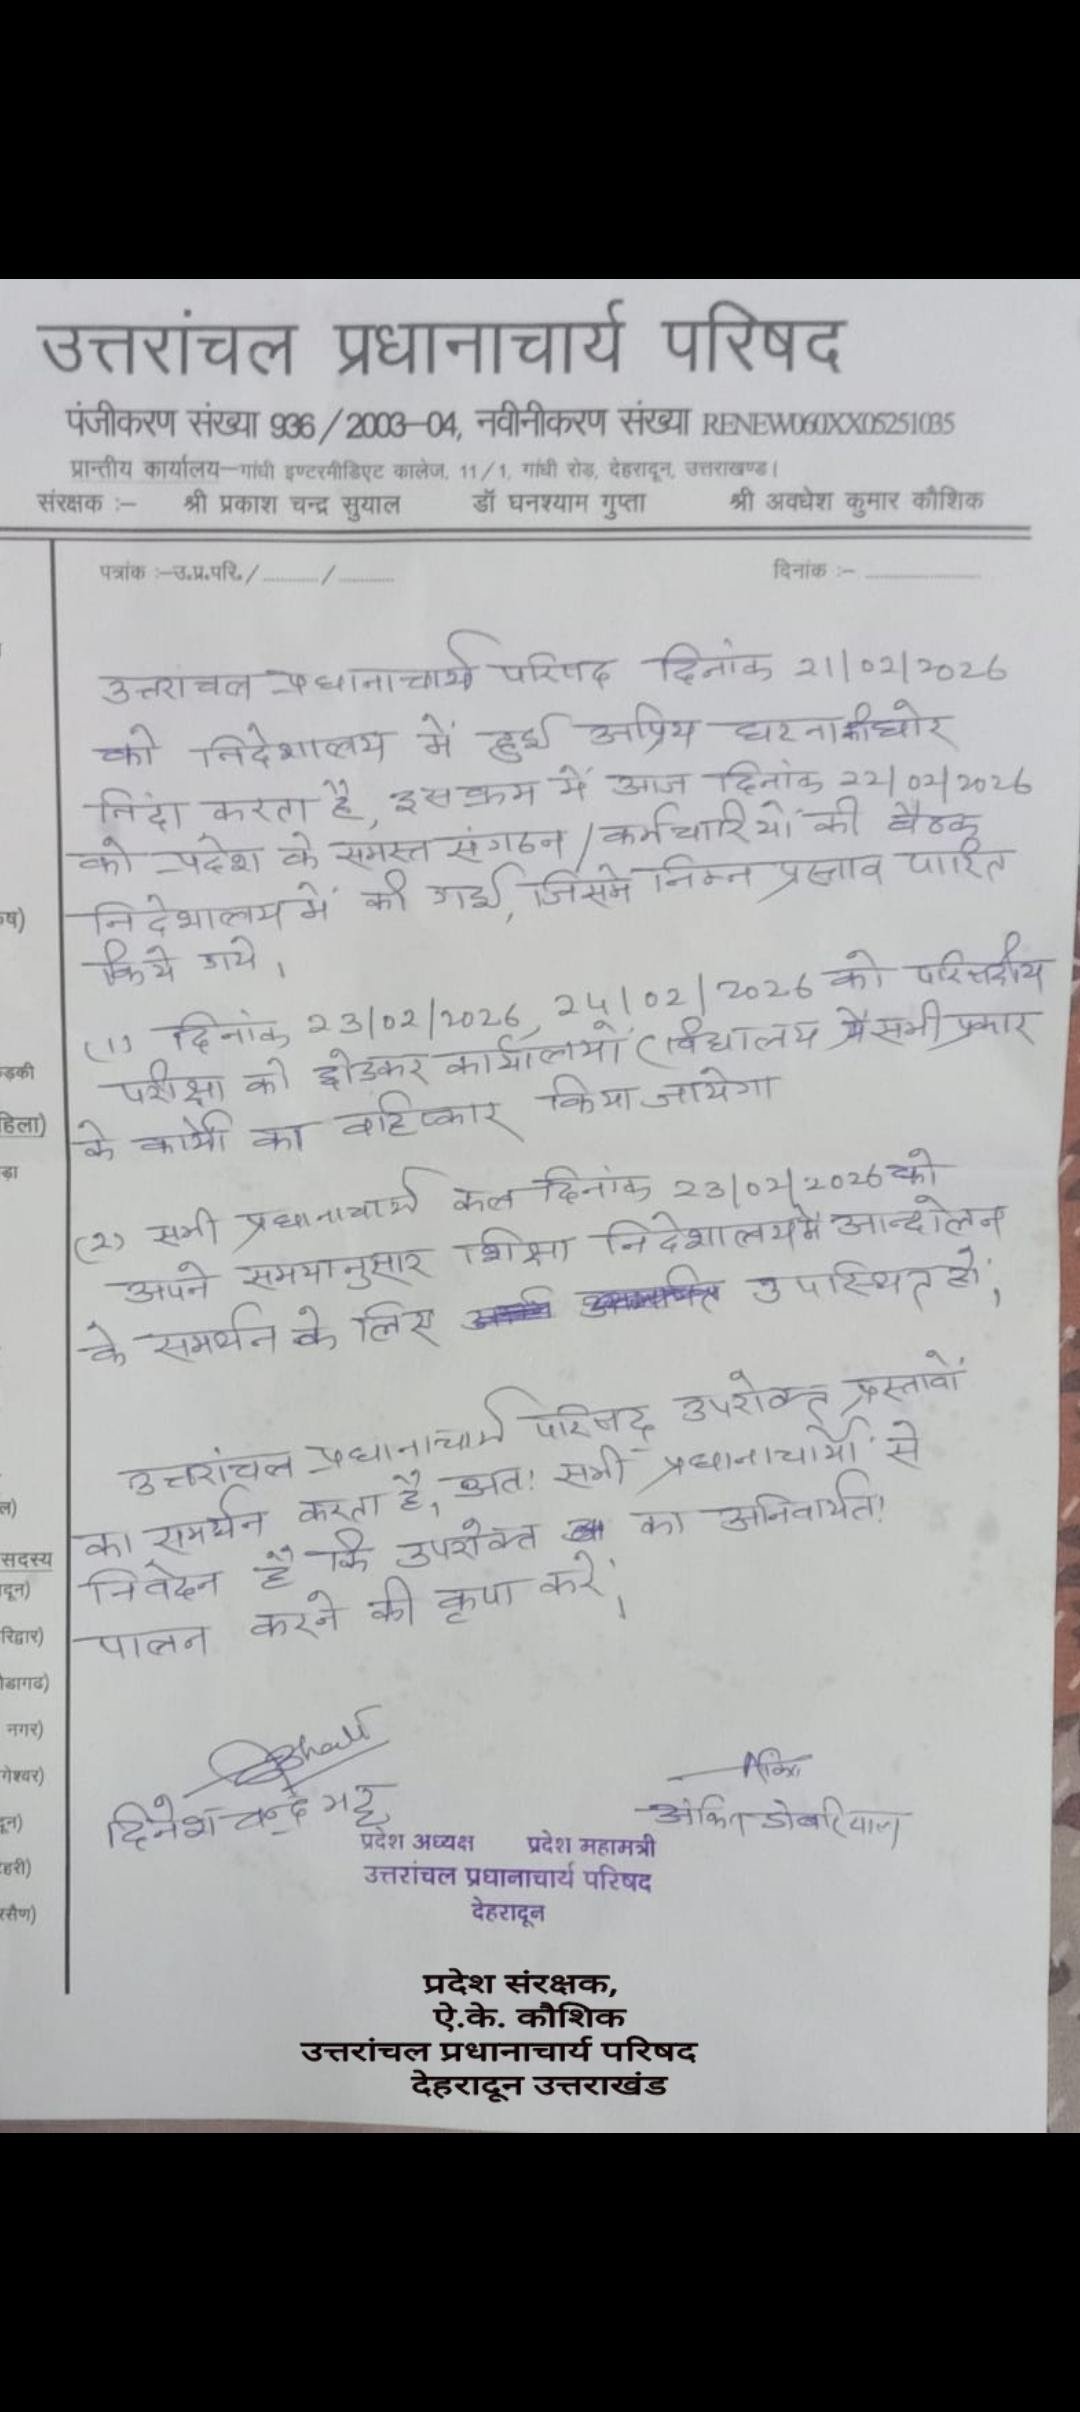 उत्तरांचल प्रधानाचार्य परिषद
पंजीकरण संख्या 936/2003-04, नवीनीकरण संख्या RENEW060XX05251035
प्रान्तीय कार्यालय—गांधी इण्टरमीडिएट कालेज, 11/1, गांधी रोड़, देहरादून, उत्तराखण्ड।
संरक्षक :- श्री प्रकाश चन्द्र सुयाल डॉ घनश्याम गुप्ता श्री अवधेश कुमार कौशिक
पत्रांक :-उ.प्र.परि./............/............
दिनांक :- ........................
उत्तरांचल प्रधानाचार्य परिषद दिनांक 21/02/2026
को निदेशालय में हुई अप्रिय घटना की घोर
निंदा करता है, इस क्रम में आज दिनांक 22/02/2026
को प्रदेश के समस्त संगठन/कर्मचारियों की बैठक
निदेशालय में की गई, जिसमे निम्न प्रस्ताव पारित
किये गये।
(1) दिनांक 23/02/2026, 24/02/2026 को परिषदीय
परीक्षा को छोडकर कार्यालयों (विद्यालय में सभी प्रकार
के कार्यो का वहिष्कार किया जायेगा
(2) सभी प्रधानाचार्य कल दिनांक 23/02/2026 को
अपने समयानुसार शिक्षा निदेशालय में आन्दोलन
के समर्थन के लिए उपस्थित हों।
उत्तरांचल प्रधानाचार्य परिषद उपरोक्त प्रस्तावों
का समर्थन करता है, अतः सभी प्रधानाचार्यों से
निवेदन है कि उपरोक्त का अनिवार्यतः
पालन करने की कृपा करें।
Bhatt
दिनेश चन्द्र भट्ट
अंकित डोबरियाल
प्रदेश अध्यक्ष प्रदेश महामंत्री
उत्तरांचल प्रधानाचार्य परिषद
देहरादून
प्रदेश संरक्षक,
ऐ.के. कौशिक
उत्तरांचल प्रधानाचार्य परिषद
देहरादून उत्तराखंड
ष)
ड़की
हिला)
ड़ा
ल)
सदस्य
दून)
रिद्वार)
डागढ)
नगर)
गेश्वर)
दून)
हरी)
रसैण)